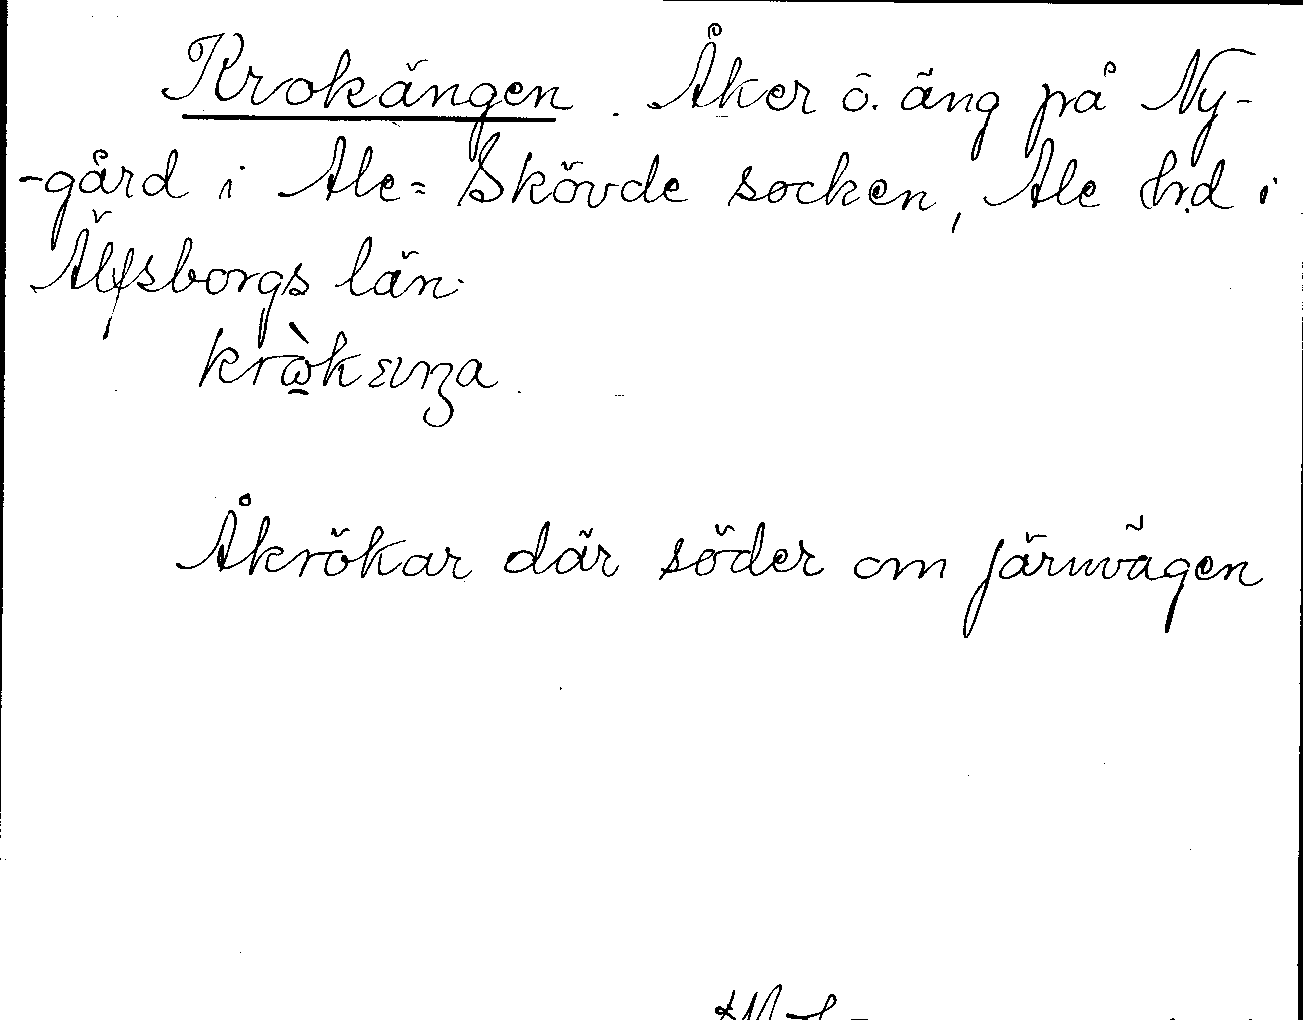 Krokängen. Åker ö. äng på Ny-
-gård i Ale=Skövde socken, Ale hrd i
Älfsborgs län.
Åkrökar där söder om järnvägen